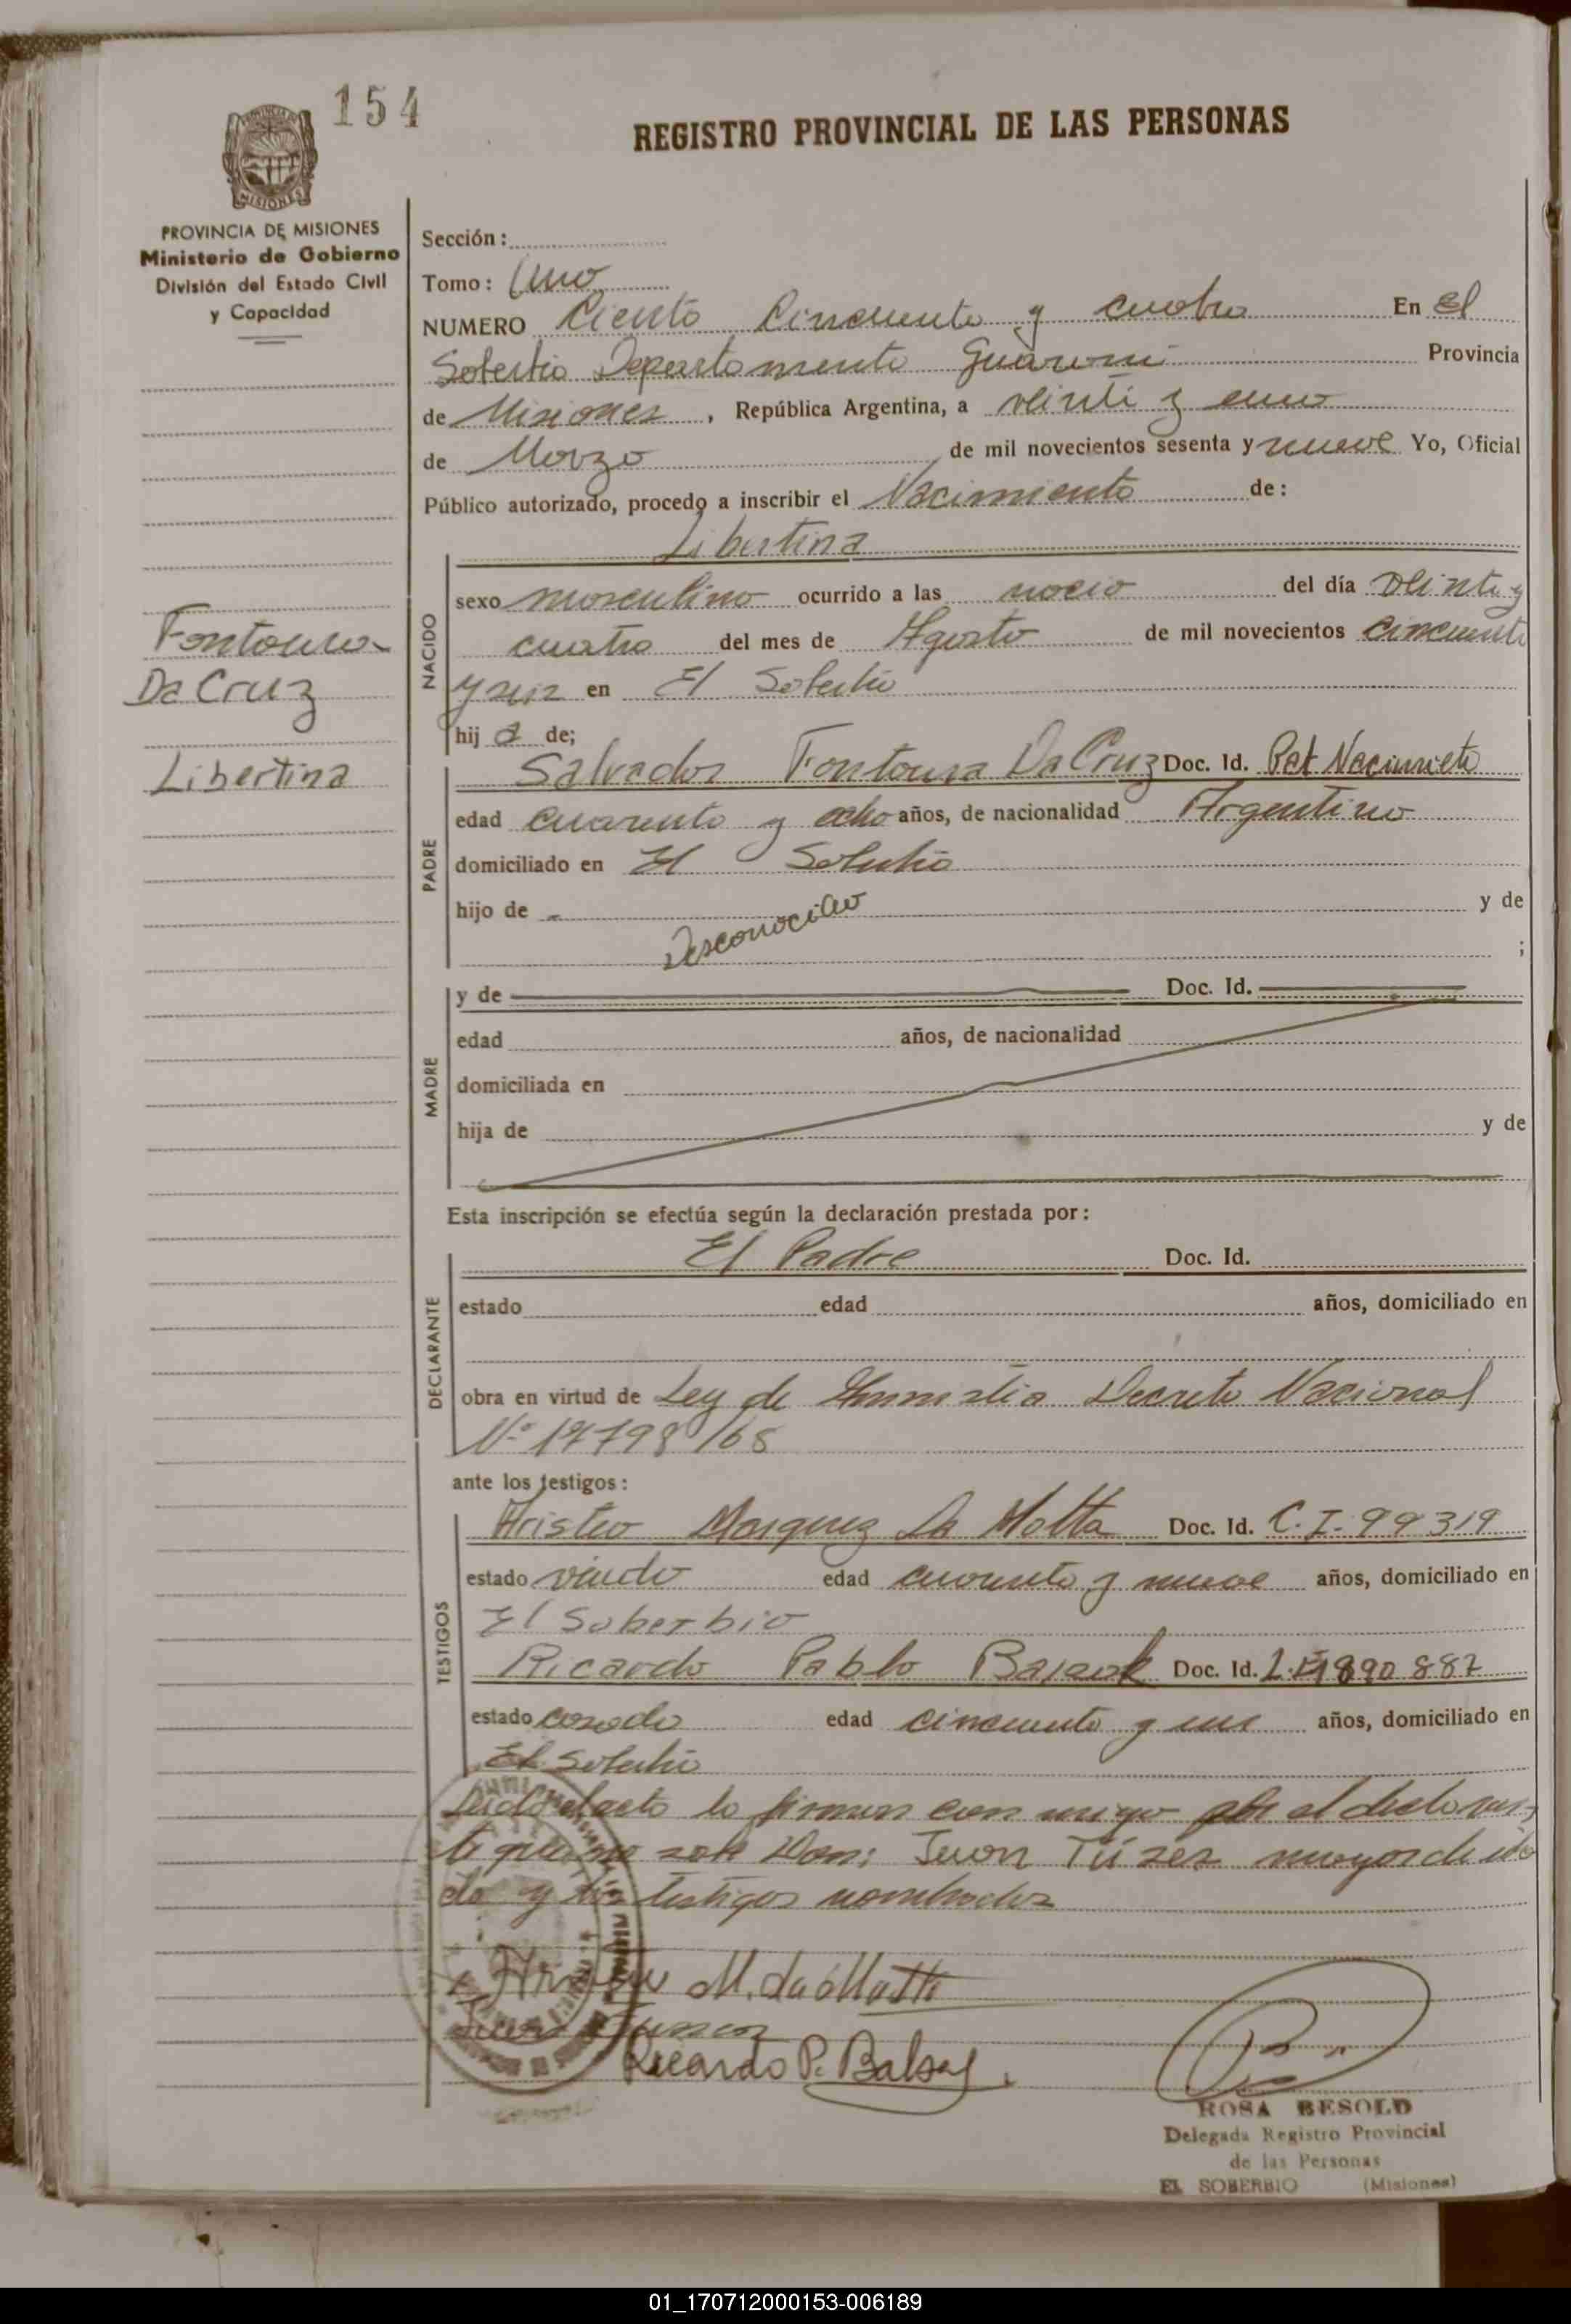 154
REGISTRO PROVINCIAL DE LAS PERSONAS
MISIONES
PROVINCIA DE MISIONES
Ministerio de Gobierno
División del Estado Civil
y Capacidad
Sección:
Tomo: Uno
NUMERO Ciento Cincuenta y cuatro En El
Soberbio Departamento Guarani Provincia
de Misiones, República Argentina, a veinti y uno
de Marzo de mil novecientos sesenta y nueve Yo, Oficial
Público autorizado, procedo a inscribir el Nacimiento de:
Libertina
Fontoura
Da Cruz
Libertina
NACIDO
sexo masculino ocurrido a las del día veinte y
cuatro del mes de Agosto de mil novecientos cincuenta
y seis en El Soberbio
hij a de;
PADRE
Salvador Fontoura Da Cruz Doc. Id. Nacimieto
edad cuarenta y ocho años, de nacionalidad Argentino
domiciliado en El Soberbio
hijo de - y de
Desconocido ;
MADRE
y de Doc. Id.
edad años, de nacionalidad
domiciliada en
hija de y de
Esta inscripción se efectúa según la declaración prestada por:
DECLARANTE
El Padre Doc. Id.
estado edad años, domiciliado en
obra en virtud de Ley de Amnistia Decreto Nacional
Nº 17798/68
ante los testigos:
TESTIGOS
Aristeo Marquez Da Motta Doc. Id. C.I. 99319
estado viudo edad cuarenta y nueve años, domiciliado en
El Soberbio
Ricardo Pablo Doc. Id. 890887
estado casado edad cincuenta y un años, domiciliado en
El Soberbio
Leido el acta la firman con migo por el declaran
te que no sabe Don: Juan mayor de eda
da y los testigos nombrados
M. da Motta
Juan
Ricardo P.
ROSA BESOLD
Delegada Registro Provincial
de las Personas
EL SOBERBIO (Misiones)
01_170712000153-006189